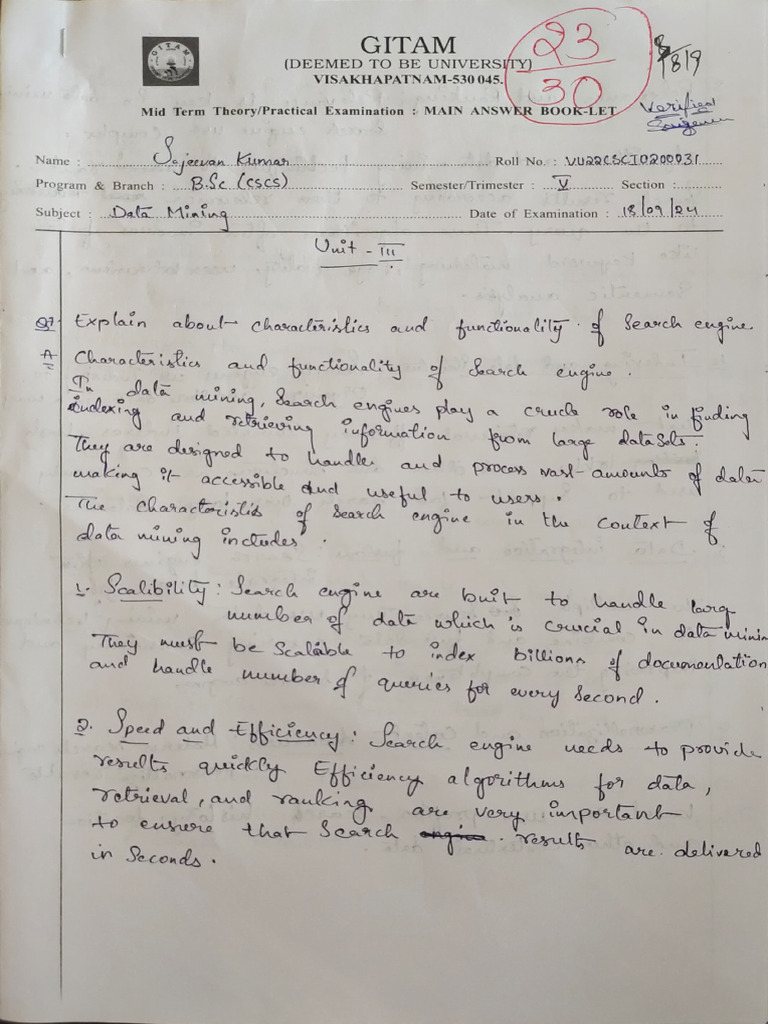 GITAM
GITAM
(DEEMED TO BE UNIVERSITY)
VISAKHAPATNAM-530 045.
23
30
18/9
Verified
Mid Term Theory/Practical Examination : MAIN ANSWER BOOK-LET
Name : Sajeevan Kumar Roll No. : VU22CSCI0200031
Program & Branch : B.Sc (CSCS) Semester/Trimester : V Section :
Subject : Data Mining Date of Examination : 18/09/24
Unit - III
Q7 Explain about characteristics and functionality of Search engine
A Characteristics and functionality of Search engine.
In data mining, Search engines play a crucle role in finding
indexing and retrieving information from large datasets.
They are designed to handle and process vast amounts of data
making it accessible and useful to users.
The characteristics of search engine in the context of
data mining includes.
1. Scalibility : Search engine are buit to handle larg
number of data which is crucial in data minin
They must be Scalable to index billions of documentation
and handle number of queries for every second.
2. Speed and Efficiency : Search engine needs to provide
results quickly Efficiency algorithms for data,
retrieval, and ranking are very important
to ensure that Search engine results are delivered
in Seconds.